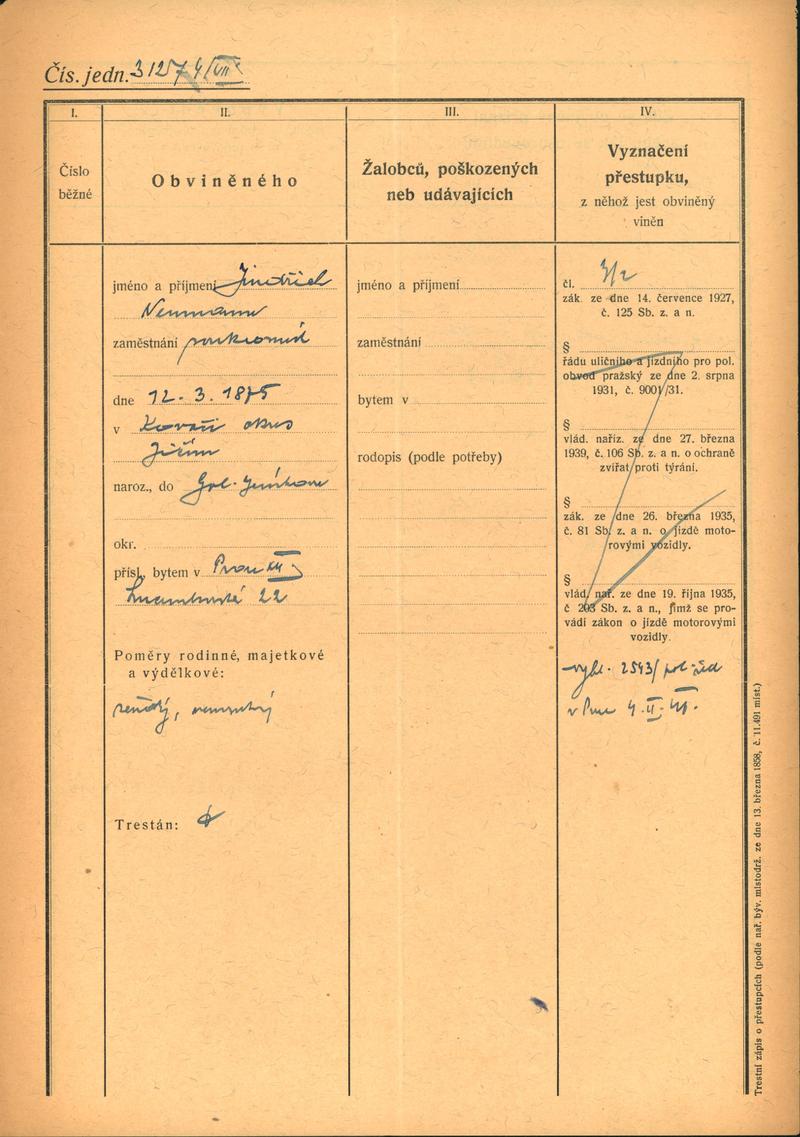 Čís. jedn. 31274/VII
I.
II.
III.
IV.
Číslo
běžné
Obviněného
Žalobců, poškozených
neb udávajících
Vyznačení
přestupku,
z něhož jest obviněný
viněn
jméno a příjmení Jindřich
Neumann
zaměstnání
dne 12. 3. 1875
v okres
Jičín
naroz., do
okr.
přísl., bytem v
22
Poměry rodinné, majetkové
a výdělkové:
ženatý, nemajetný
Trestán:
jméno a příjmení
zaměstnání
bytem v
rodopis (podle potřeby)
čl. 3/2
zák. ze dne 14. července 1927,
č. 125 Sb. z. a n.
§
řádu uličního a jízdního pro pol.
obvod pražský ze dne 2. srpna
1931, č. 9001/31.
§
vlád. naříz. ze dne 27. března
1939, č. 106 Sb. z. a n. o ochraně
zvířat proti týrání.
§
zák. ze dne 26. března 1935,
č. 81 Sb. z. a n. o jízdě moto-
rovými vozidly.
§
vlád. nař. ze dne 19. října 1935,
č 203 Sb. z. a n., jímž se pro-
vádí zákon o jízdě motorovými
vozidly.
vyhl. 2543/ pol. řed
v 4. II.
Trestní zápis o přestupcích (podle nař. býv. místodrž. ze dne 13. března 1858, č. 11.491 míst.)